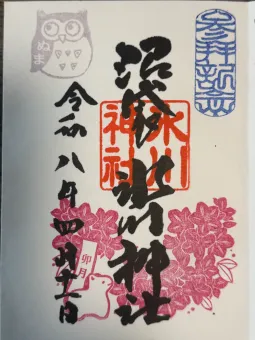 参拝記念
沼袋氷川神社
氷川神社
令和八年四月十一日
ぬま
卯月